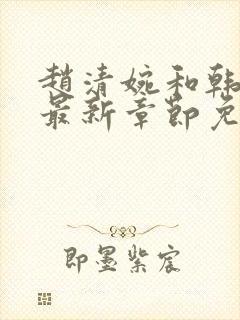 趙清婉和韩
最新章節免
即墨紫宸